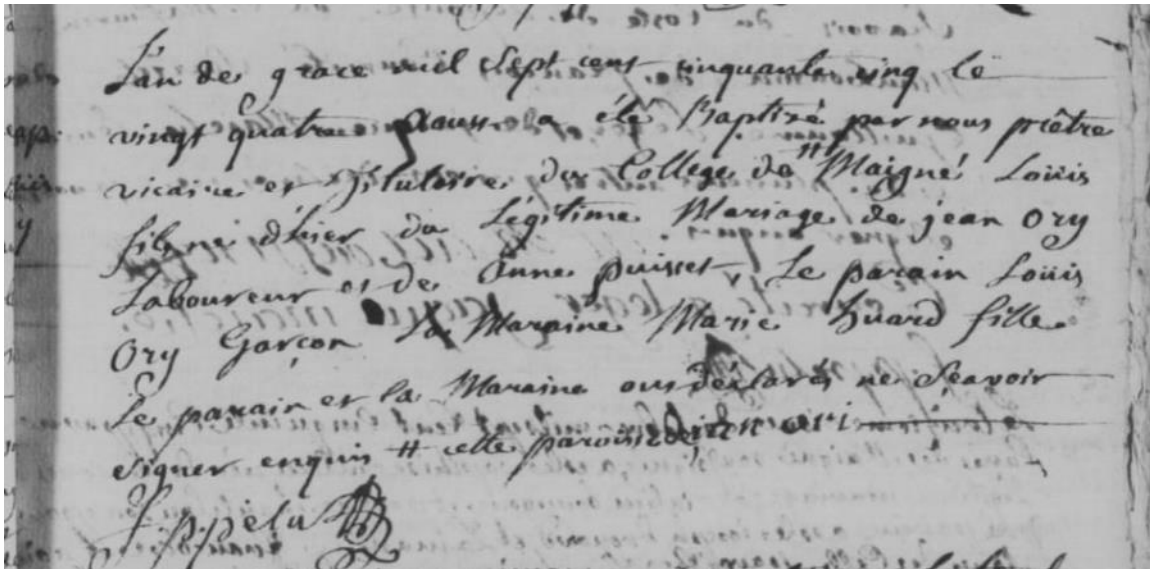 L'an de grace mil Sept cens cinquante cinq le
vingt quatre Aoust a été Baptizé par nous prêtre
vicaire et titulaire du College de # Maigné Loüis
fils né d'hier du Légitime Mariage de jean Ory
Laboureur et de Anne puisset, Le parain Loüis
Ory Garçon La Maraine Marie huard fille
Le parain et la Maraine ont déclarés ne Sçavoir
signer enquis # cette paroisse